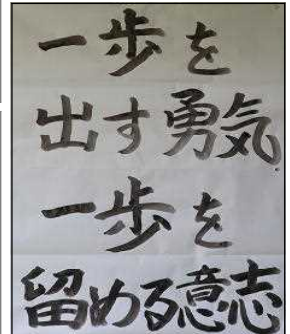 一歩を
出す勇気
一歩を
留める意志